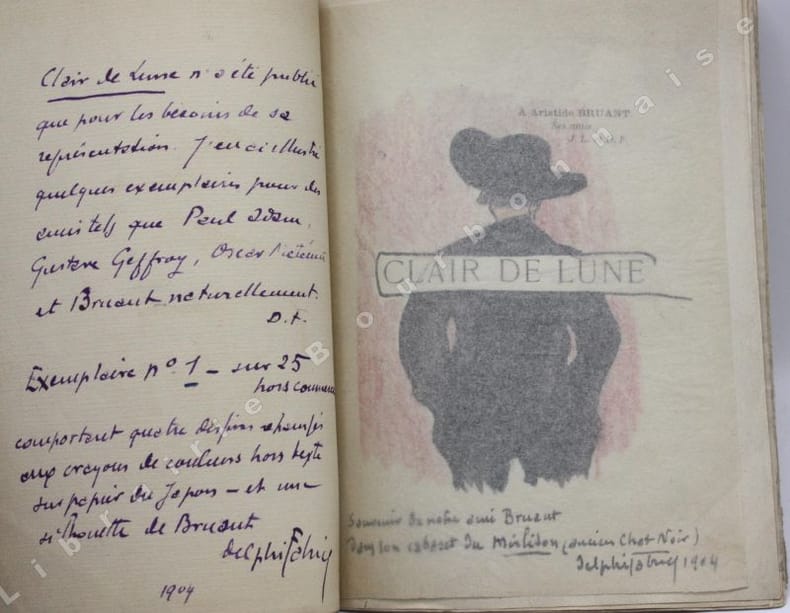 Clair de Lune n'a été publié
que pour les besoins de sa
représentation. J'en ai illustré
quelques exemplaires pour des
amis tels que Paul Adam,
Gustave Geffroy, Oscar Méténier
et Bruant naturellement.
D.F.
Exemplaire nº 1 - sur 25
hors commerce
comportant quatre dessins rehaussés
aux crayons de couleurs hors texte
sur papier du Japon - et une
silhouette de Bruant
1904
A Aristide BRUANT
CLAIR DE LUNE
Souvenir de notre ami Bruant
dans son cabaret du Mirliton (ancien Chat Noir)
1904
Librairie Bourbonnaise